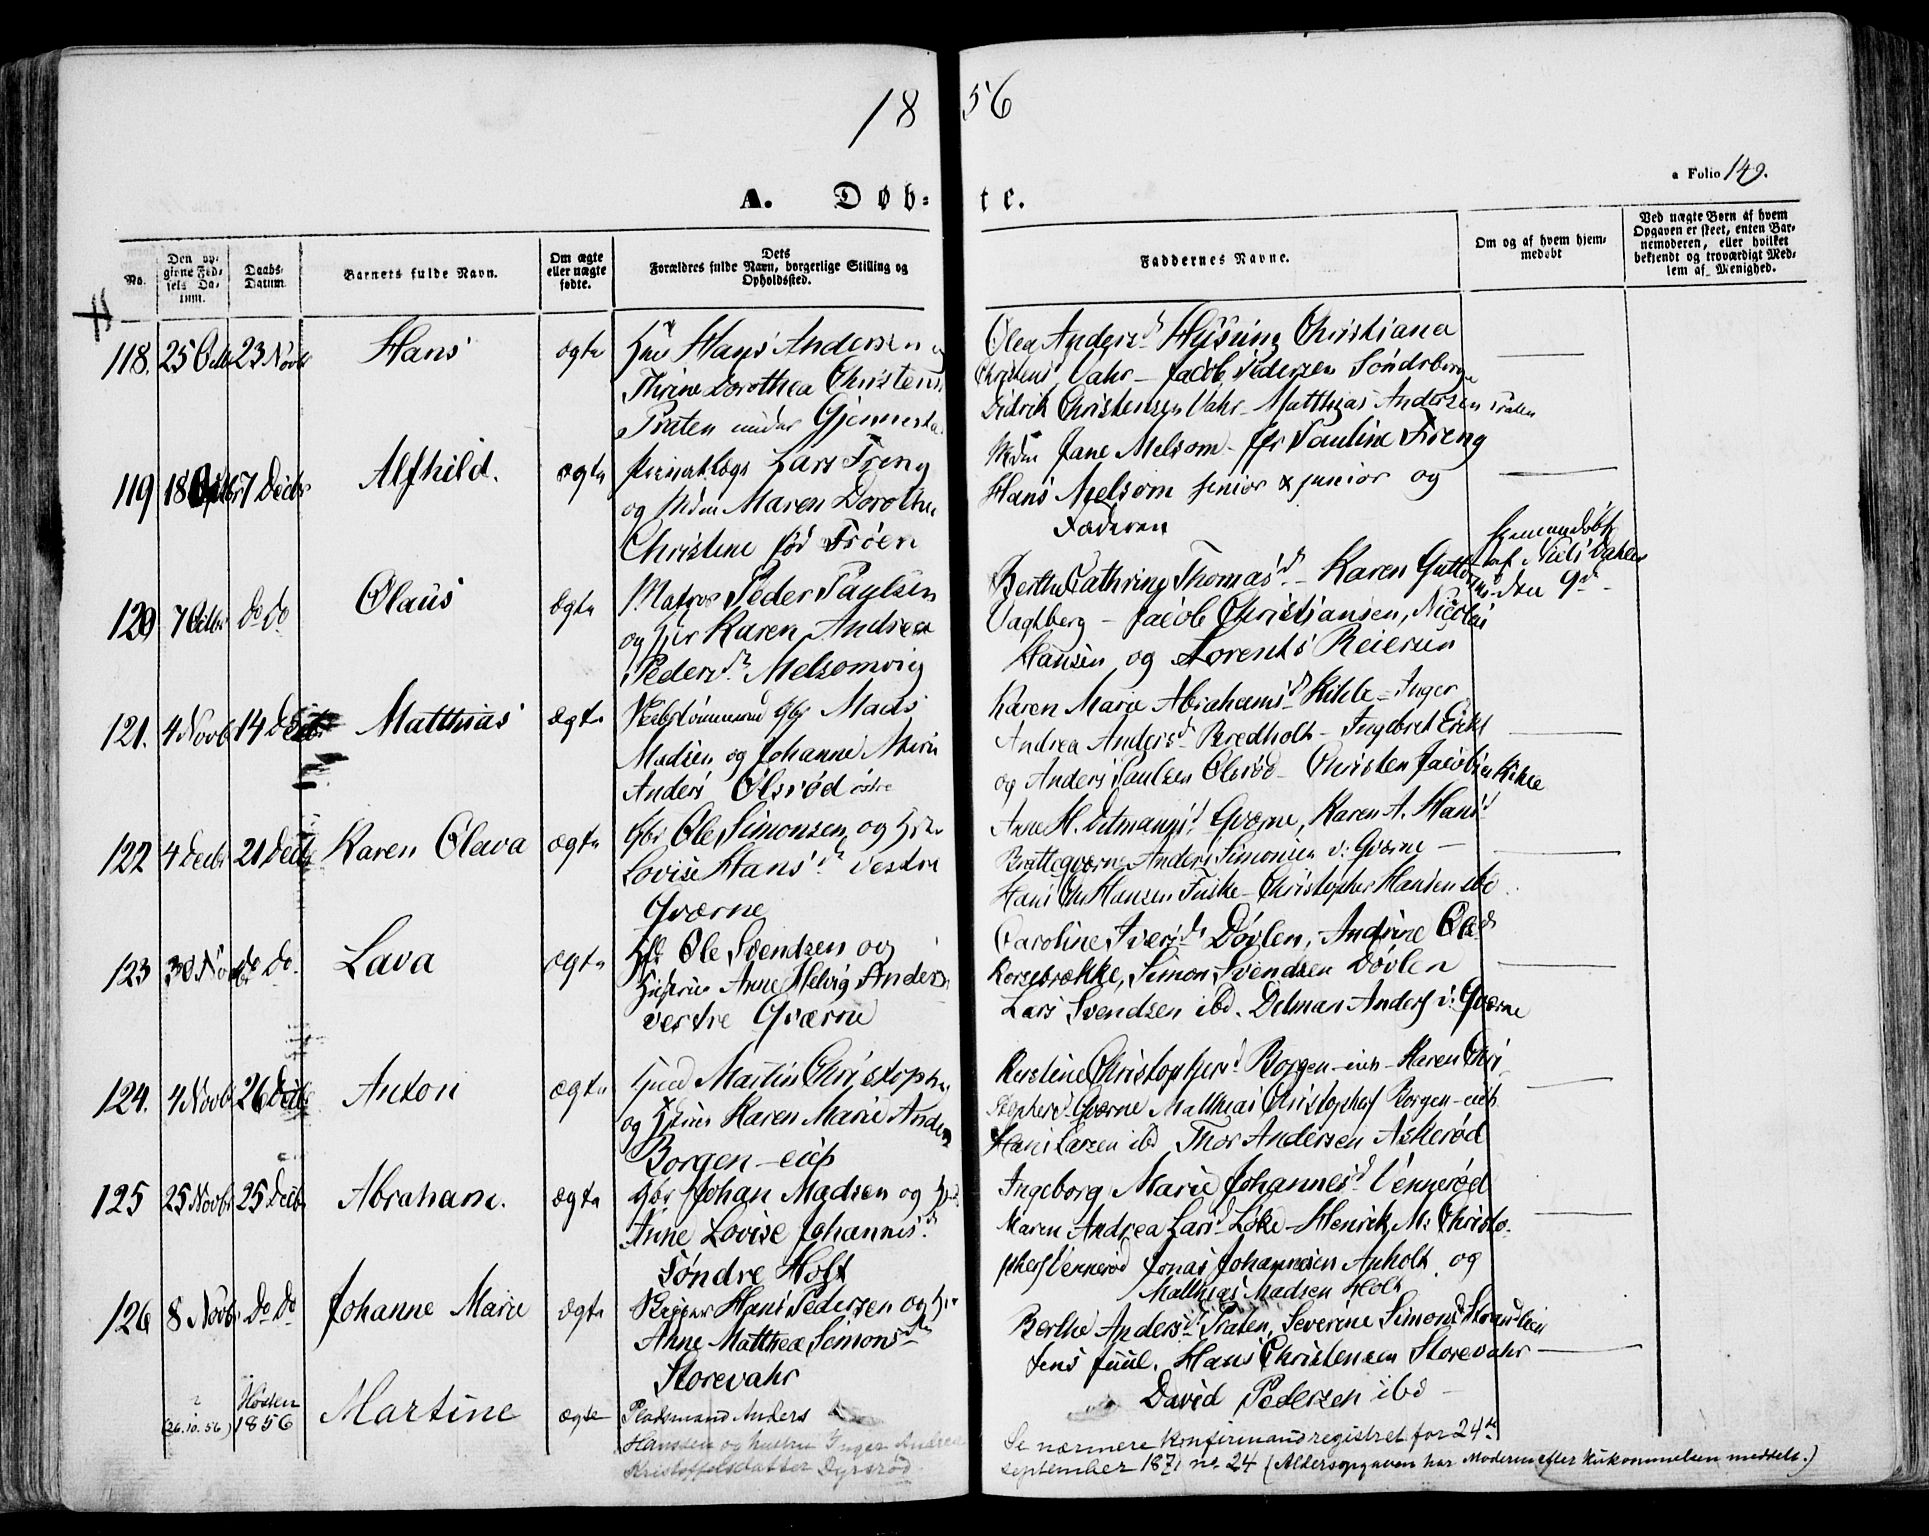 1856
a Folio 149.
A. Døbte.
No.
Den opgivne Fødsels Datum.
Daabs-Datum.
Barnets fulde Navn.
Om ægte eller uægte fødte.
Dets Forældres fulde Navn, borgerlige Stilling og Opholdssted.
Faddernes Navne.
Om og af hvem hjemmedøbt
Ved uægte Børn af hvem Opgaven er skeet, enten Barnemoderen, eller hvilket bekjendt og troværdigt Medlem af Menighed.
118. 25 Octbr 23 Novbr Hans ægte
Hans Andersen og
Thrine Dorothea Christens
Praten under Gjennestad
Olea Anders d Hysing Christiana
Christens d Vahr - Jacob Pedersen Søndeberge
Didrik Christensen Vahr - Matthias Andersen Praten
119 18 7 Decbr Alfhild. ægte
Lars Freng
og Mdm Maren Dorothea
Christine fød Frøen
Mdm Jane Melsom - Pauline Freng
Hans Melsom senior & junior og
Faderen
120 7 Octbr do do Olaus ægte
Matros Peder Paulsen
og Karen Andrea
Peders d Melsomvig
Berthe Cathrine Thomas d - Karen
Vagtberg - Jacob Christiansen, Nicolai
Hansen og Lorents Reiersen
hjemmedøbt
af Niels Dahler
den 9 d
121. 4 Novbr 14 Decbr Matthias ægte
Mads
Madsen og Johanne Marie
Anders Olsrød østre
Karen Marie Abrahams d Kihle - Inger
Andrea Anders d Bredholt - Ingebret Eriks
og Anders Paulsen Olsrød - Christen Jacobsen Kihle
122 4 Decbr 21 Decbr Karen Oleva ægte
Gbr Ole Simonsen og
Lovise Hans d Vestre
Qværne
Anne H. Detmans d Qværne, Karen A. Hans d
Bratteqværne Anders Simonsen v: Qværne -
Hans Chr Hansen Fuske - Christopher Hansen ibd
123 30 Novbr do do. Lava ægte
Ole Svendsen og
Anne Helvig Anders
vestre Qværne
Caroline Ivers d Døvlen, Andrine Ols d
Korsebrække, Simon Svendsen Døvlen
Lars Svendsen ibd. Detman Anders v: Qværne
124. 4 Novbr 26 Decbr Anton ægte
Martin Christopher
og Karen Marie Anders
Borgen-eie
Kirstine Christophers d Borgen-eie - Karen Chri
stophers d Qværne Matthias Christophers Borgen-eie
Hans Larsen ibd Thor Andersen Askerød
125 25 Novbr 25 Decbr Abraham. ægte
Gbr Johan Madsen og
Anne Lovise Johannis d
Søndre Holt
Ingeborg Marie Johannes d Vennerød
Maren Andrea Lars d Løke - Henrik M: Christo-
phers Vennerød Jonas Johannesen Apholt og
Matthias Madsen Holt
126 8 Novbr do do Johanne Marie ægte
Hans Pedersen og
Anne Matthea Simons d
Storevahr
Berthe Anders d Praten, Severine Simons d
Jens Juul, Hans Christensen Storevahr
David Pedersen ibd -
? (26.10.56) Høsten 1856 Martine ægte
Pladsmand Anders
Hanssen og hustru Inger Andrea
Kristoffersdatter Dyrsrød.
Se nærmere Konfirmandregistret for 24de
september 1871 no 24 (Aldersopgaven har Moderen efter hukommelsen meddelt.)